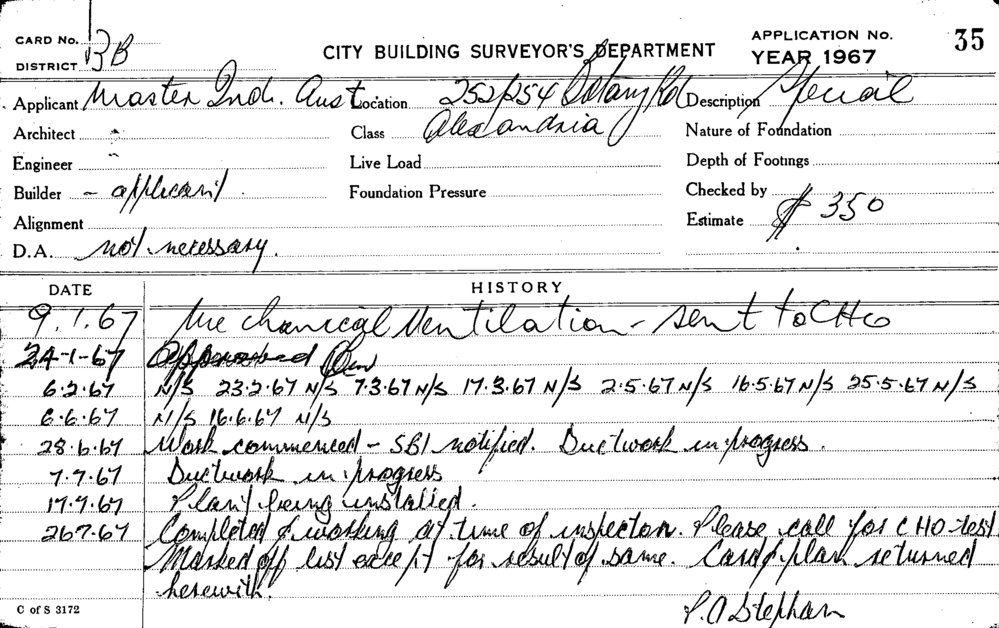 CARD No. CITY BUILDING SURVEYOR'S DEPARTMENT APPLICATION No. 35
DISTRICT 3B YEAR 1967
Applicant Master Ind. Aust Location 252/254 Botany Rd Description Special
Architect " Class Alexandria Nature of Foundation
Engineer " Live Load Depth of Footings
Builder - applicant Foundation Pressure Checked by
Alignment Estimate $350
D.A. not necessary.
DATE HISTORY
9.1.67 Mechanical Ventilation - sent to CHO
24-1-67 Approved
6.2.67 N/S 23.2.67 N/S 7.3.67 N/S 17.3.67 N/S 2.5.67 N/S 16.5.67 N/S 25.5.67 N/S
6.6.67 N/S 16.6.67 N/S
28.6.67 Work commenced - SBI notified. Ductwork in progress.
7.7.67 Ductwork in progress
17.7.67 Plant being installed.
26.7.67 Completed & working at time of inspection. Please call for CHO test
Marked off list except for result of same. Card & plan returned
herewith.
C of S 3172 P.A Stephan